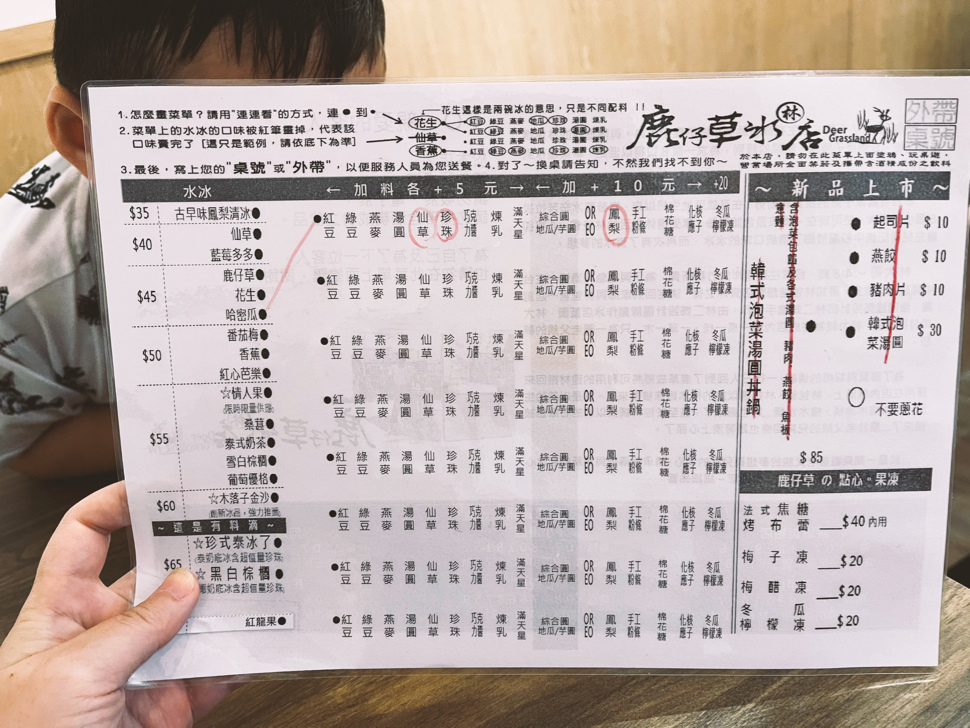 1.怎麼畫菜單？請用"連連看"的方式，連●到●
2.菜單上的水冰的口味被紅筆畫掉，代表該
口味賣完了［這只是範例，請依底下為準］
3.最後，寫上您的"桌號"或"外帶"，以便服務人員為您送餐。4.對了～換桌請告知，不然我們找不到你～
花生這樣是兩碗冰的意思，只是不同配料！！
花生
仙草
香蕉
紅豆 綠豆 燕麥 地瓜 珍珠 湯圓 煉乳
鹿仔草冰店
林
Deer
Grassland
外帶
桌號
水冰
← 加料各+5元→
←加+10元→
+20
～新品上市～
$35 古早味鳳梨清冰●
$40 仙草●
藍莓多多●
$45 鹿仔草●
花生●
哈密瓜●
$50 番茄梅●
香蕉●
紅心芭樂●
$55 ☆情人果●
(限時限量供應)
桑葚●
泰式奶茶●
雪白棕櫚●
葡萄優格●
$60 ☆木落子金沙●
～這是有料滴～
$65 ☆珍式泰冰了●
(泰奶底冰含超值量珍珠)
☆黑白棕櫚●
紅龍果●
●紅豆 綠豆 燕麥 湯圓 仙草 珍珠 巧克力醬 煉乳 滿天星 綜合圓 地瓜/芋圓 OREO 鳳梨 手工粉條 棉花糖 化核應子 冬瓜檸檬凍
●紅豆 綠豆 燕麥 湯圓 仙草 珍珠 巧克力醬 煉乳 滿天星 綜合圓 地瓜/芋圓 OREO 鳳梨 手工粉條 棉花糖 化核應子 冬瓜檸檬凍
●紅豆 綠豆 燕麥 湯圓 仙草 珍珠 巧克力醬 煉乳 滿天星 綜合圓 地瓜/芋圓 OREO 鳳梨 手工粉條 棉花糖 化核應子 冬瓜檸檬凍
●紅豆 綠豆 燕麥 湯圓 仙草 珍珠 巧克力醬 煉乳 滿天星 綜合圓 地瓜/芋圓 OREO 鳳梨 手工粉條 棉花糖 化核應子 冬瓜檸檬凍
●紅豆 綠豆 燕麥 湯圓 仙草 珍珠 巧克力醬 煉乳 滿天星 綜合圓 地瓜/芋圓 OREO 鳳梨 手工粉條 棉花糖 化核應子 冬瓜檸檬凍
●紅豆 綠豆 燕麥 湯圓 仙草 珍珠 巧克力醬 煉乳 滿天星 綜合圓 地瓜/芋圓 OREO 鳳梨 手工粉條 棉花糖 化核應子 冬瓜檸檬凍
●紅豆 綠豆 燕麥 湯圓 仙草 珍珠 巧克力醬 煉乳 滿天星 綜合圓 地瓜/芋圓 OREO 鳳梨 手工粉條 棉花糖 化核應子 冬瓜檸檬凍
●紅豆 綠豆 燕麥 湯圓 仙草 珍珠 巧克力醬 煉乳 滿天星 綜合圓 地瓜/芋圓 OREO 鳳梨 手工粉條 棉花糖 化核應子 冬瓜檸檬凍
韓式泡菜湯圓丼鍋
$85
● 起司片 $10
● 燕餃 $10
● 豬肉片 $10
● 韓式泡菜湯圓 $30
不要蔥花
鹿仔草の點心。果凍
法式焦糖
烤布蕾 ___$40 內用
梅子凍 ___$20
梅醋凍 ___$20
冬瓜
檸檬凍 ___$20